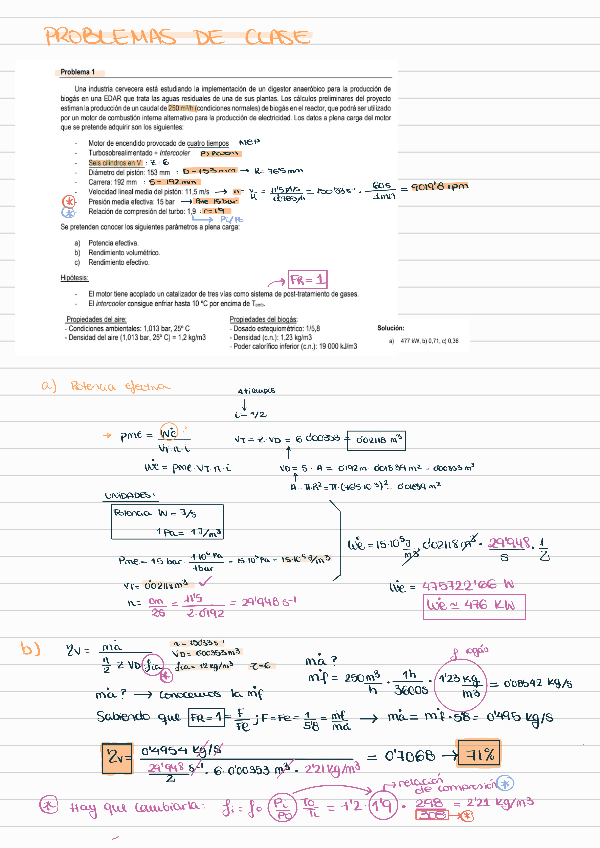 PROBLEMAS DE CLASE
Problema 1
Una industria cervecera está estudiando la implementación de un digestor anaeróbico para la producción de
biogás en una EDAR que trata las aguas residuales de una de sus plantas. Los cálculos preliminares del proyecto
estiman la producción de un caudal de 250 m³/h (condiciones normales) de biogás en el reactor, que podrá ser utilizado
por un motor de combustión interna alternativo para la producción de electricidad. Los datos a plena carga del motor
que se pretende adquirir son los siguientes:
- Motor de encendido provocado de cuatro tiempos MEP
- Turbosobrealimentado + intercooler
- Seis cilindros en V : Z = 6
- Diámetro del pistón: 153 mm : D = 153 mm → R = 76'5 mm
- Carrera: 192 mm : S = 192 mm
- Velocidad lineal media del pistón: 11,5 m/s
= 9019'6 rpm
- Presión media efectiva: 15 bar → pme 15 bar
- Relación de compresión del turbo: 1,9 : r = 1'9
Se pretenden conocer los siguientes parámetros a plena carga:
a) Potencia efectiva.
b) Rendimiento volumétrico.
c) Rendimiento efectivo.
Hipótesis:
FR = 1
- El motor tiene acoplado un catalizador de tres vías como sistema de post-tratamiento de gases.
- El intercooler consigue enfriar hasta 10 ºC por encima de Tamb.
Propiedades del aire:
- Condiciones ambientales: 1,013 bar, 25º C
- Densidad del aire (1,013 bar, 25º C) = 1,2 kg/m3
Propiedades del biogás:
- Dosado estequiométrico: 1/5,8
- Densidad (c.n.): 1,23 kg/m3
- Poder calorífico inferior (c.n.): 19 000 kJ/m3
Solución:
a) 477 kW, b) 0,71, c) 0,36
a) Potencia efectiva
4 tiempos
i = 1/2
→ pme = Ẇe / VT·n·i
VT = z·VD = 6·0'00353 = 0'02118 m³
Ẇe = pme·VT·n·i
VD = S·A = 0'192m·0'01839m² = 0'00353 m³
A = π·R² = π·(76'5·10⁻³)² = 0'01839 m²
UNIDADES:
Potencia W = J/s
1 Pa = 1 J/m³
Ẇe = 15·10⁵ J/m³ · 0'02118 m³ · 29'948/s · 1/2
Pme = 15 bar · 10⁵ Pa/1bar = 15·10⁵ Pa = 15·10⁵ J/m³
VT = 0'02118 m³ ✓
Ẇe = 475722'66 W
n = cm/2S = 11'5/2·0'192 = 29'948 s⁻¹
Ẇe ≃ 476 KW
b)
VD = 0'00353 m³
z = 6
ṁa?
ṁf = 250 m³/h · 1h/3600s · 1'23 Kg/m³ = 0'08542 Kg/s
ṁa? → conocemos la ṁf
Sabiendo que FR = 1 = F/Fe ; F = Fe = 1/5'8 = ṁf/ṁa → ṁa = ṁf·5'8 = 0'495 Kg/s
0'4954 Kg/s / 29'948 s⁻¹/2 · 6·0'00353 m³ · 2'21 Kg/m³ = 0'7068 → 71%
→ relación
de compresión
Hay que cambiarla: ρi = ρo (Pi/Po) To/Ti = 1'2·1'9 · 298/308 = 2'21 Kg/m³